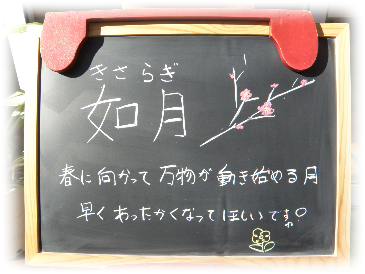 きさらぎ
如月
春に向かって万物が動き始める月
早くあったかくなってほしいですね